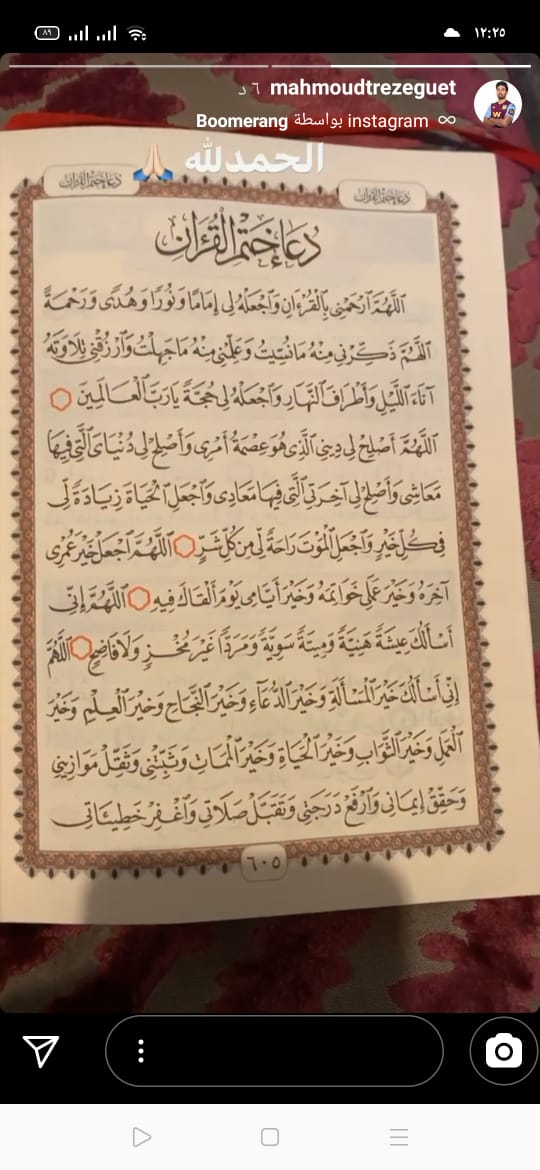 ١٢:٢٥
٨٩
mahmoudtrezeguet ٦ د
Boomerang بواسطة instagram ∞
الحمدلله 🙏🏻
دعاء ختم القرآن
دعاء ختم القرآن
دُعَاءُ خَتْمِ الْقُرْءَانِ
اَللَّهُمَّ ارْحَمْنِي بِالْقُرْءَانِ وَاجْعَلْهُ لِي إِمَامًا وَنُورًا وَهُدًى وَرَحْمَةً
اَللَّهُمَّ ذَكِّرْنِي مِنْهُ مَا نَسِيتُ وَعَلِّمْنِي مِنْهُ مَا جَهِلْتُ وَارْزُقْنِي تِلَاوَتَهُ
آنَاءَ اللَّيْلِ وَأَطْرَافَ النَّهَارِ وَاجْعَلْهُ لِي حُجَّةً يَا رَبَّ الْعَالَمِينَ
اَللَّهُمَّ أَصْلِحْ لِي دِينِي الَّذِي هُوَ عِصْمَةُ أَمْرِي وَأَصْلِحْ لِي دُنْيَايَ الَّتِي فِيهَا
مَعَاشِي وَأَصْلِحْ لِي آخِرَتِي الَّتِي فِيهَا مَعَادِي وَاجْعَلِ الْحَيَاةَ زِيَادَةً لِي
فِي كُلِّ خَيْرٍ وَاجْعَلِ الْمَوْتَ رَاحَةً لِي مِنْ كُلِّ شَرٍّ اَللَّهُمَّ اجْعَلْ خَيْرَ عُمْرِي
آخِرَهُ وَخَيْرَ عَمَلِي خَوَاتِمَهُ وَخَيْرَ أَيَّامِي يَوْمَ أَلْقَاكَ فِيهِ اَللَّهُمَّ إِنِّي
أَسْأَلُكَ عِيشَةً هَنِيَّةً وَمِيتَةً سَوِيَّةً وَمَرَدًّا غَيْرَ مُخْزٍ وَلَا فَاضِحٍ اَللَّهُمَّ
إِنِّي أَسْأَلُكَ خَيْرَ الْمَسْأَلَةِ وَخَيْرَ الدُّعَاءِ وَخَيْرَ النَّجَاحِ وَخَيْرَ الْعِلْمِ وَخَيْرَ
الْعَمَلِ وَخَيْرَ الثَّوَابِ وَخَيْرَ الْحَيَاةِ وَخَيْرَ الْمَمَاتِ وَثَبِّتْنِي وَثَقِّلْ مَوَازِينِي
وَحَقِّقْ إِيمَانِي وَارْفَعْ دَرَجَتِي وَتَقَبَّلْ صَلَاتِي وَاغْفِرْ خَطِيئَاتِي
٦٠٥